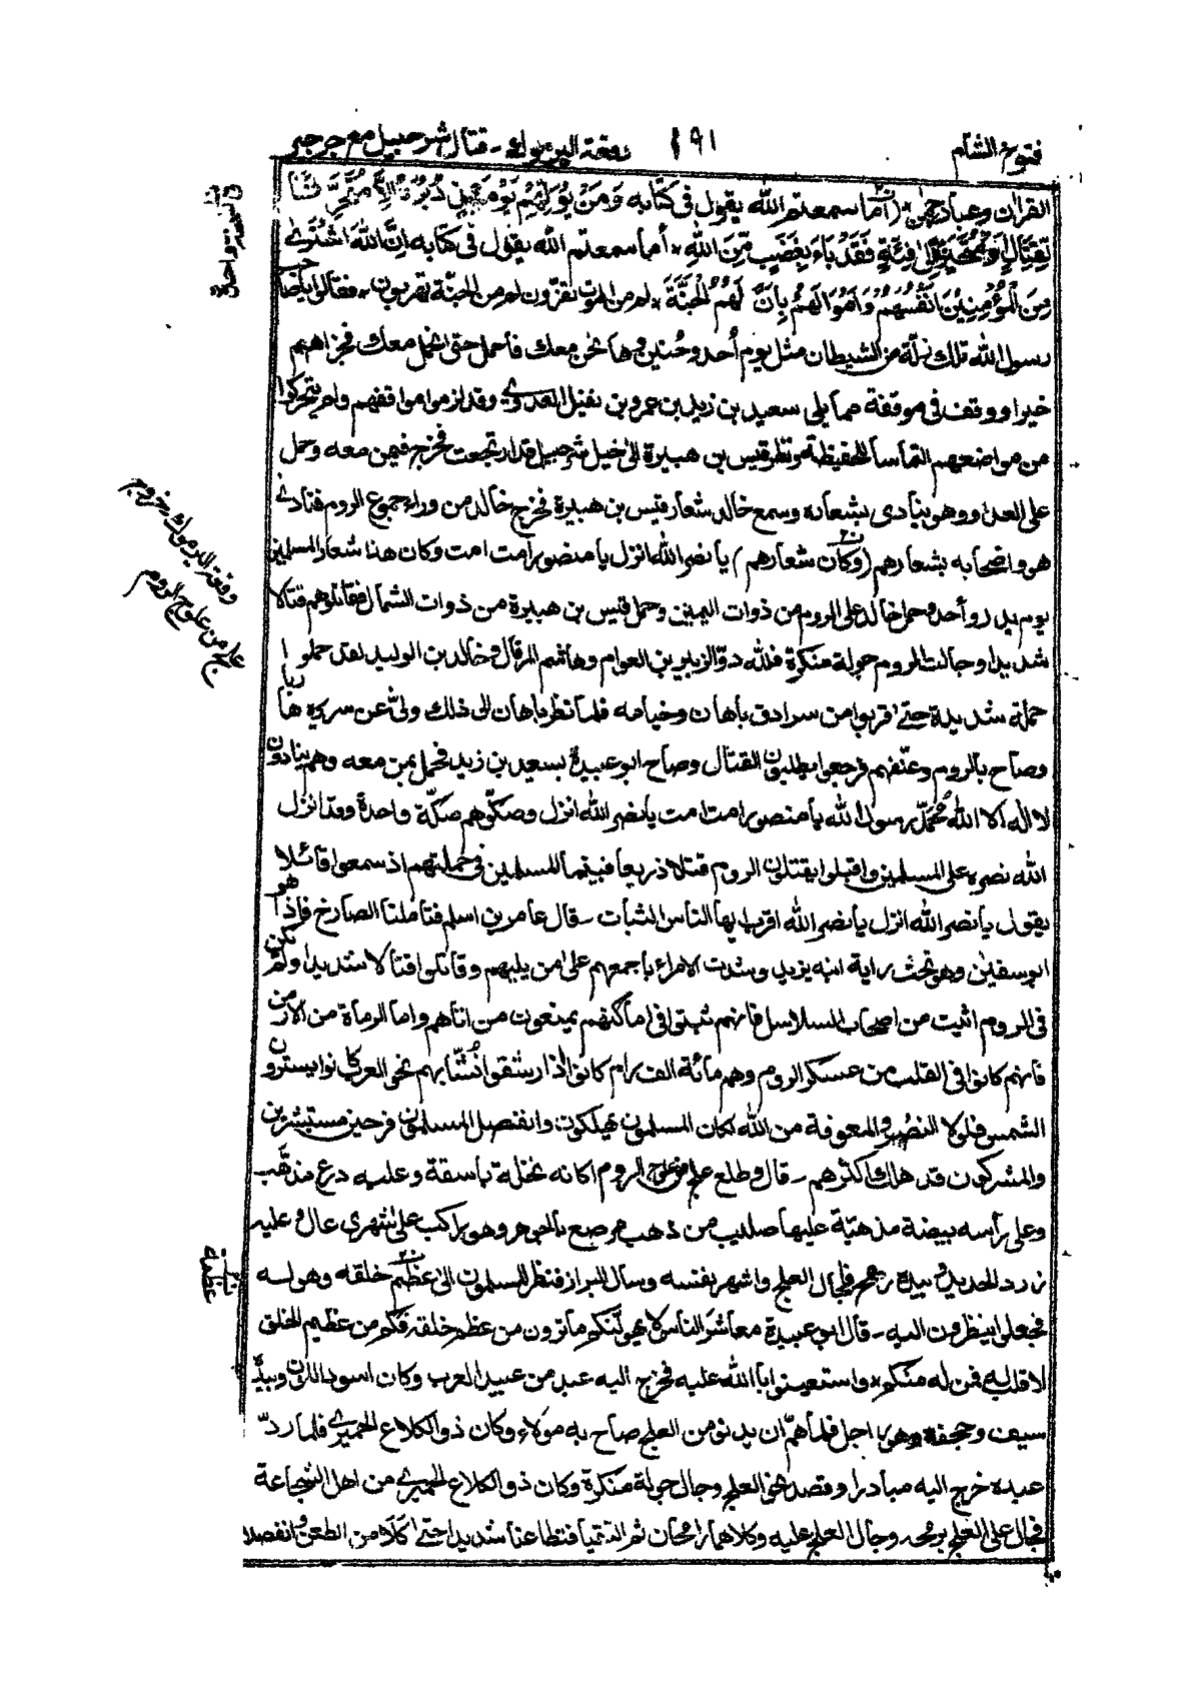 فتوح الشام
١٩١
وقعة اليرموك - قتال شرحبيل مع جرجير
القران وعباد رحمن (أما سمعتم الله يقول في كتابه وَمَنْ يُوَلِّهِمْ يَوْمَئِذٍ دُبُرَهُ إِلَّا مُتَحَرِّفًا
لِقِتَالٍ أَوْ مُتَحَيِّزًا إِلَى فِئَةٍ فَقَدْ بَاءَ بِغَضَبٍ مِّنَ اللهِ * أما سمعتم الله يقول في كتابه إِنَّ اللهَ اشْتَرَى
مِنَ الْمُؤْمِنِيْنَ اَنْفُسَهُمْ وَاَمْوَالَهُمْ بِاَنَّ لَهُمُ الْجَنَّةَ * امن الموت تفرّون ام من الجنّة تهربون - فقالوا يا صاحب
رسول الله تلك نزلة من الشيطان مثل يوم أُحد وحُنين وها نحن معك فاحمل حتى نحمل معك فجزاهم
خيرا ووقف في موقفة مما يلي سعيد بن زيد بن عمرو بن نفيل العدوي وقد لزموا مواقفهم ولم يتحركوا
من مواضعهم التماسا للحفيظة ونظر قيس بن هبيرة الى خيل شرحبيل قد ارتجعت فخرج فيمن معه وحمل
على العدا ووهو ينادى بشعاره وسمع خالد شعار قيس بن هبيرة فخرج خالد من وراء جموع الروم فنادى
هو واصحابه بشعارهم (وكان شعارهم) يا نصر الله انزل يا منصور امت امت وكان هذا شعار المسلمين
يوم بدر وأحد وحمل خالد على الروم من ذوات اليمين وحمل قيس بن هبيرة من ذوات الشمال فقاتلوهم قتالا
شديدا وجالت الروم جولة منكرة فلله درّ الزبير بن العوام وهاشم المرقال وخالد بن الوليد لقد حملوا
حملة شديدة حتى قربوا من سرادق باهان وخيامه فلما نظر باهان الى ذلك ولى عن سريره هاربا
وصاح بالروم وعنّفهم فرجعوا يطلبون القتال وصاح ابو عبيدة بسعيد بن زيد فحمل بمن معه وهم ينادون
لا اله الا الله مُحَمَّد رسول الله يا منصور امت امت يا نصر الله انزل وصكّوهم صكّة واحدة وقد انزل
الله نصره على المسلمين واقبلوا يقتلون الروم قتلا ذريعا فبينما المسلمين في حملتهم اذ سمعوا قائلا
يقول يا نصر الله انزل يا نصر الله اقرب ايها الناس الثبات - قال عامر بن اسلم فتاملنا الصارخ فاذا هو
ابوسفين وهو تحت راية ابنه يزيد وشدت الامراء باجمعهم على من يليهم وقاتلوا قتالا شديدا ولم تكن
في الروم اثبت من اصحاب السلاسل فانهم ثبتوا في اماكنهم يمنعون من اتاهم واما الرماة من الارمن
فانهم كانوا في القلب من عسكر الروم وهم مائة الف رام كانوا اذا رشقوا نُشّابهم نحو العرب كانوا يسترون
الشمس فلولا النصر والمعونة من الله لكان المسلمون هلكوا وانفصل المسلمون فرحين مستبشرين
والمشركون قد هلك اكثرهم - قال وطلع علج من علوج الروم كانه نخلة باسقة وعليه درع مذهّب
وعلى رأسه بيضة مذهبّة عليها صليب من ذهب مرصع بالجوهر وهو راكب على شهري عال وعليه
زرد الحديد وبيده رمح فجال العلج واشهر نفسه وسأل البراز فنظر المسلمون الى عظم خلقه وهو له
فجعلوا ينظرون اليه - قال ابو عبيدة معاشر الناس لا يهولنّكم ما ترون من عظم خلقه فكم من عظيم الخلق
لا قلب له فمن له منكم * واستعينوا بالله عليه فخرج اليه عبد من عبيد العرب وكان اسود اللون وبيده
سيف وحجفة وهو راجل فلما همّ ان يدنو من العلج صاح به مولاه وكان ذو الكلاع الحميري فلما ردّ
عبده خرج اليه مبادرا وقصد نحو العلج وجال جولة منكرة وكان ذو الكلاع الحميري من اهل الشجاعة
فجال على العلج برمحه وجال العلج عليه وكلاهما رامحان ثم التقيا فتطاعنا شديدا حتى كلّا من الطعن وانفصلا
وقعة اليرموك وخروج
علج من علوج الروم